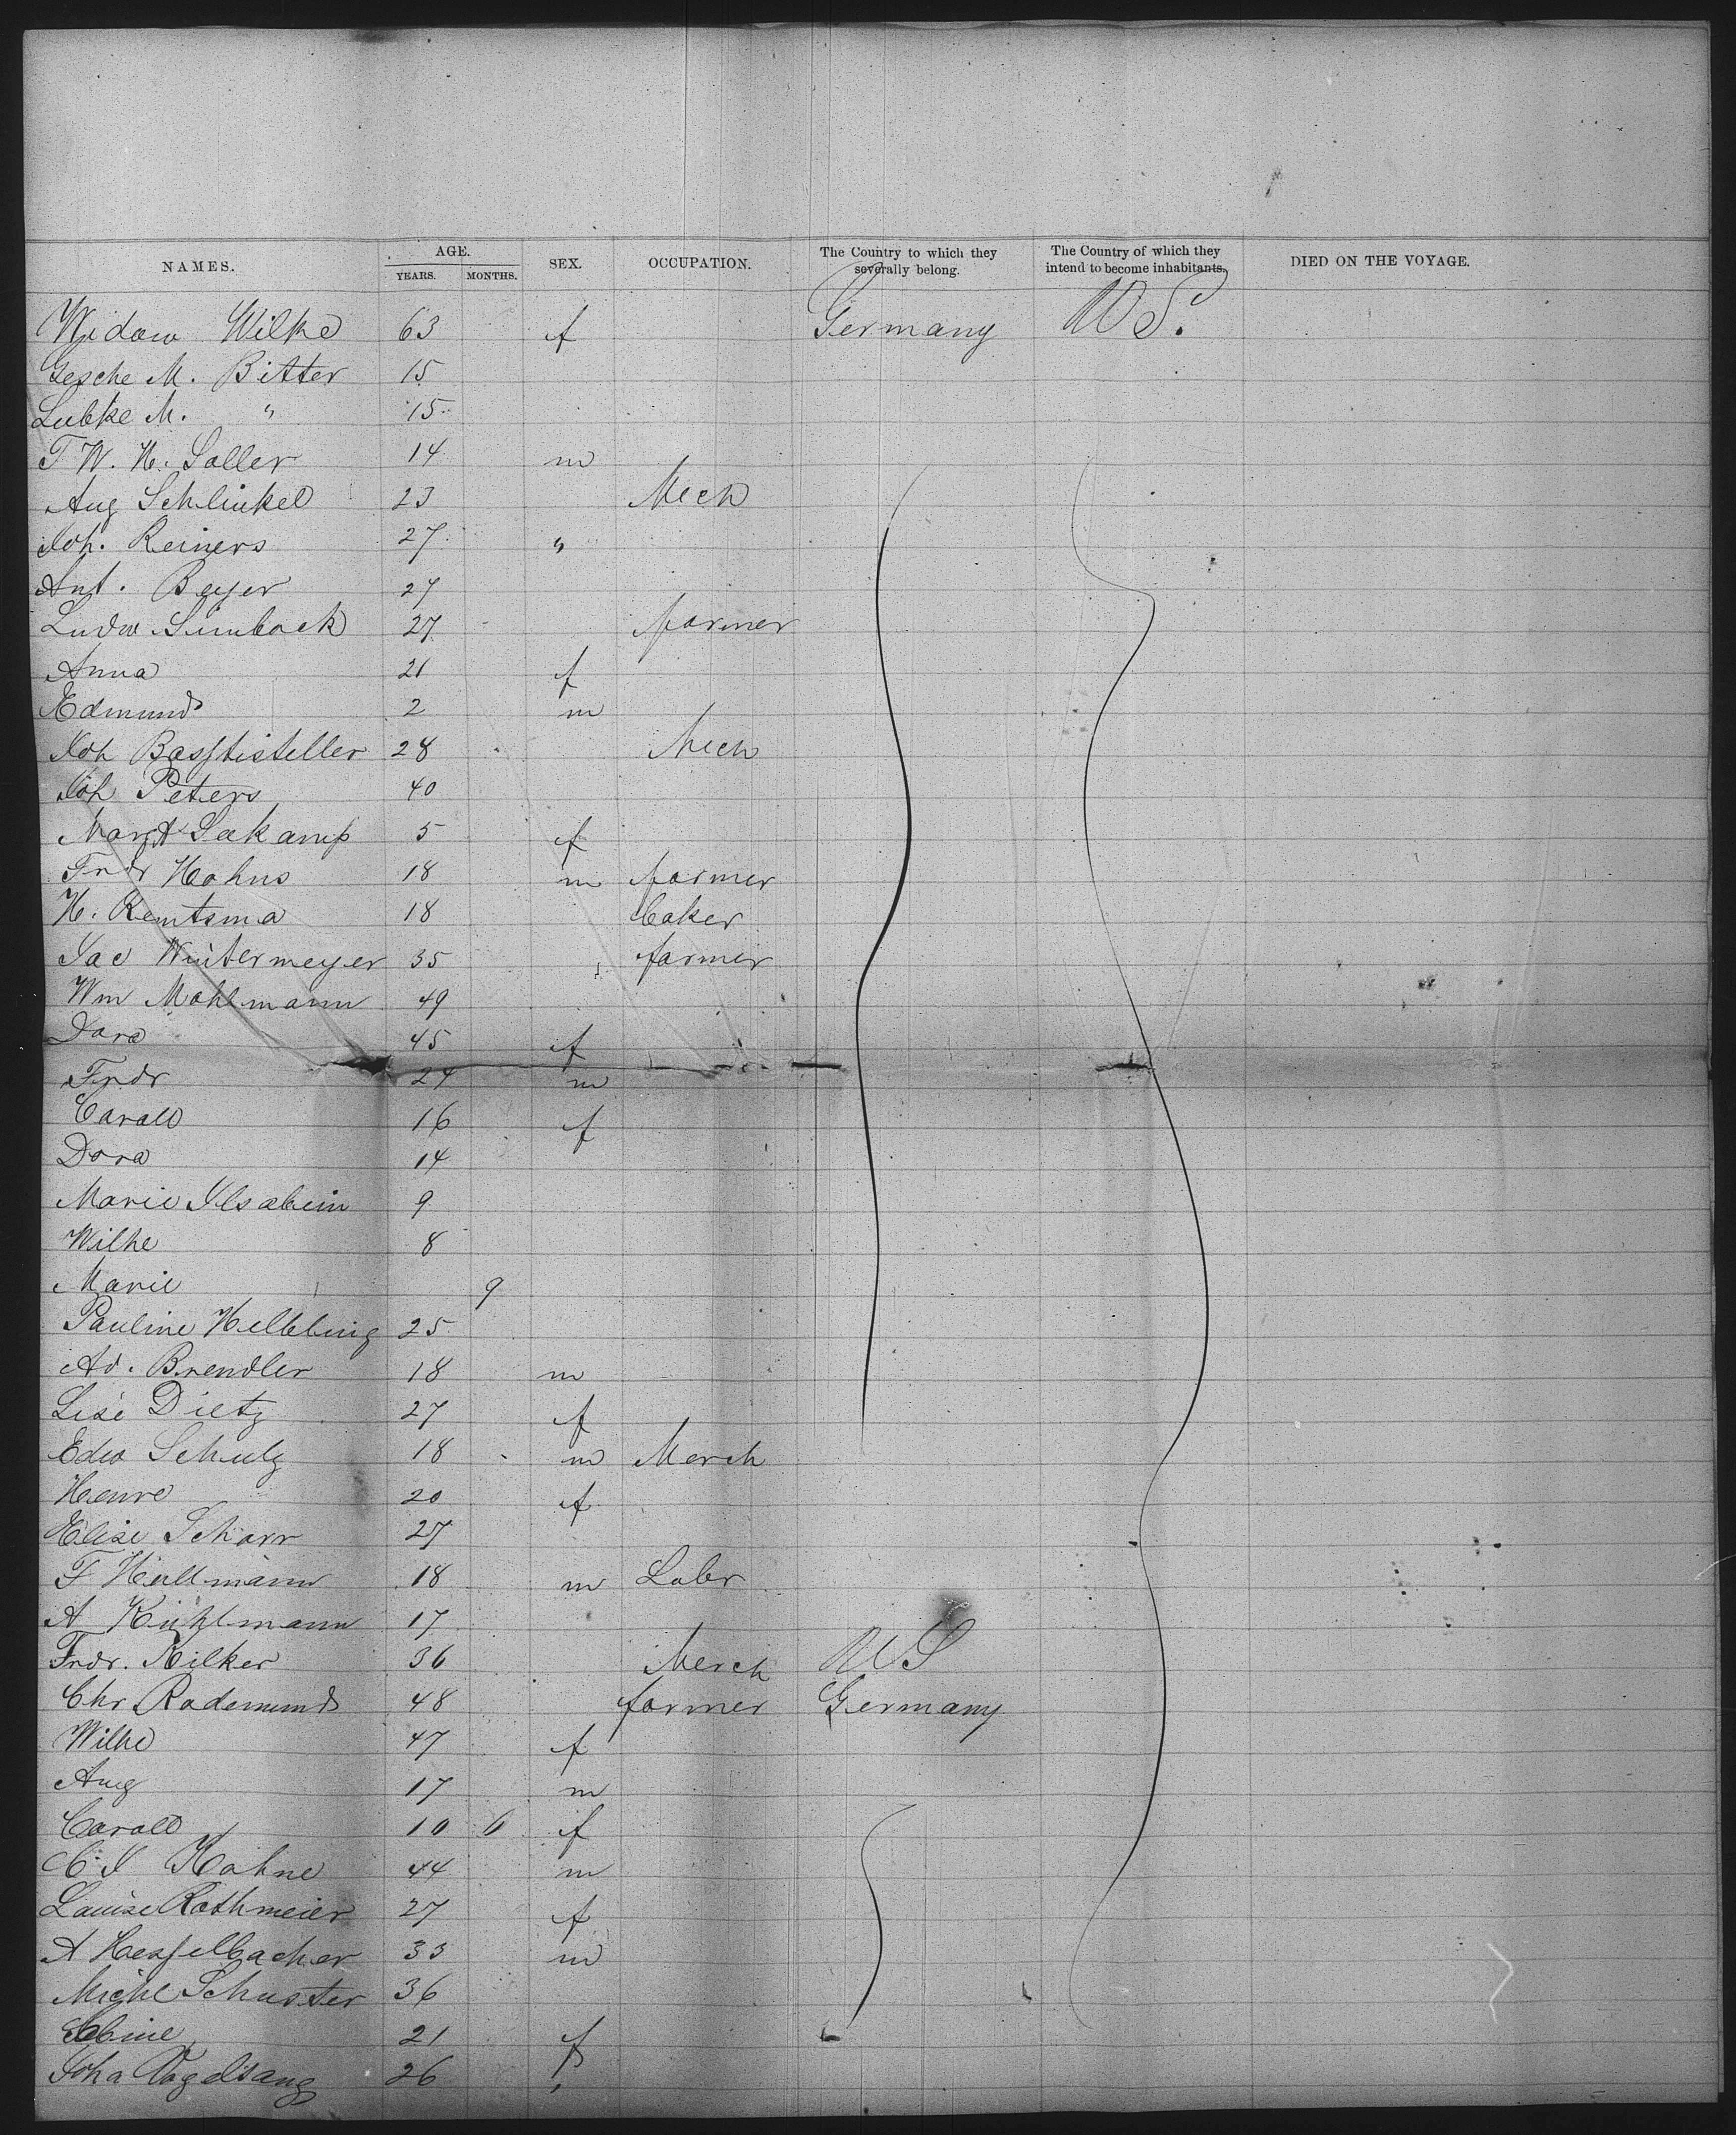 NAMES. AGE. YEARS. MONTHS. SEX. OCCUPATION. The Country to which they severally belong. The Country of which they intend to become inhabitants. DIED ON THE VOYAGE.
Widow Wilke 63 f Germany U S.
Gesche M. Bitter 15
Lubke M. " 15
F W. H. Saller 14 m
Aug Schlinkel 23 Mech
Joh. Reiners 27 "
Ant. Beyer 27
Ludw. 27 farmer
Anna 21 f
Edmund 2 m
Joh 28 Mech
Joh Peters 40
Margt 5 f
Frdr Hohns 18 m farmer
H. Remtsma 18 baker
Jac Wintermeyer 35 farmer
Wm Mohlmann 49
Dora 45 f
Frdr 24 m
Carole 16 f
Dora 14
Marie Ilsabein 9
Wilhe 8
Marie 9
Pauline Hellbing 25
Ad. Brendler 18 m
Lise Dietz 27 f
Edw Schulz 18 m Merch
Henre 20 f
Elise Scharr 27
F 18 m Labr
A Kuhlmann 17
Frdr. Kilker 36 Merch U S
Chr Rademund 48 farmer Germany
Wilhe 47 f
Aug 17 m
Carole 10 6 f
C. J Kohne 44 m
Louise Rothmeier 27 f
A Hesselbacher 33 m
Michl Schuster 36
21 f
Joha Vogelsang 26 "